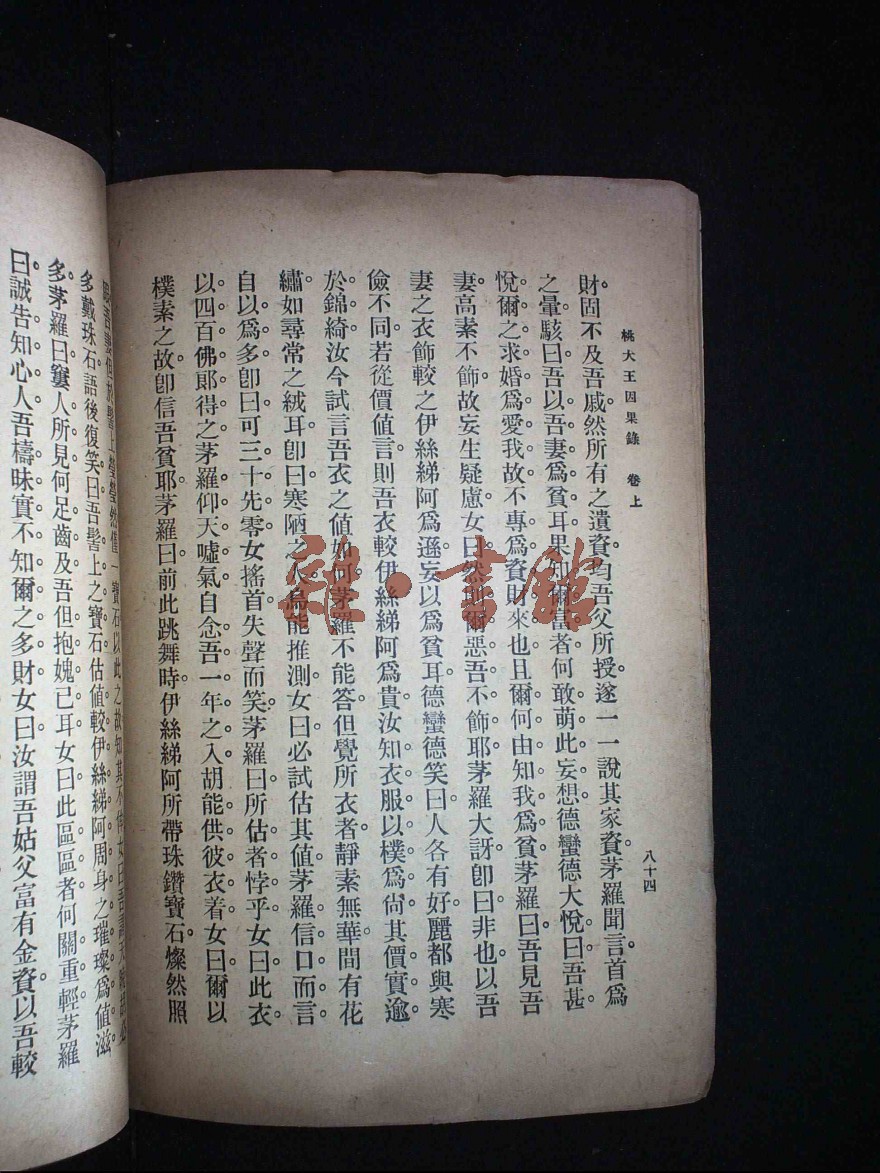 桃大王因果錄 卷上
八十四
財固不及吾。戚然所有之遺資。均吾父所授。遂一一說其家資。茅羅聞言。首爲
之暈。駭曰。吾以吾妻爲貧耳。果知爾富者。何敢萌此妄想。德蠻德大悅曰。吾甚
悅爾之求婚爲愛我。故不專爲資財來也。且爾何由知我爲貧。茅羅曰。吾見吾
妻高素不飾。故妄生疑慮。女曰。然則爾惡吾不飾耶。茅羅大訝。卽曰。非也。以吾
妻之衣飾較之伊絲綈阿爲遜。妄以爲貧耳。德蠻德笑曰。人各有好。麗都與寒
儉不同。若從價値言。則吾衣較伊絲綈阿爲貴。汝知衣服以樸爲尙。其價實逾
於錦綺。汝今試言吾衣之値如何。茅羅不能答。但覺所衣者靜素無華。間有花
繡。如尋常之絨耳。卽曰。寒陋之人。烏能推測。女曰。必試估其値。茅羅信口而言。
自以爲多。卽曰。可三十先零。女搖首失聲而笑。茅羅曰。所估者悖乎。女曰。此衣
以四百佛郎得之。茅羅仰天噓氣。自念吾一年之入。胡能供彼衣着。女曰。爾以
樸素之故。卽信吾貧耶。茅羅曰。前此跳舞時。伊絲綈阿所帶珠鑽寶石。燦然照
但於髻上瑩瑩然僅一寶石以此之故知其不侔女曰吾
多戴珠石。語後復笑曰。吾髻上之寶石估値較伊絲綈阿周身之璀璨爲値滋
多。茅羅曰。窶人所見。何足齒及。吾但抱媿已耳。女曰。此區區者何關重輕。茅羅
曰。誠告知心人。吾檮昧實不知爾之多財。女曰。汝謂吾姑父富有金資。以吾較
雜·書館